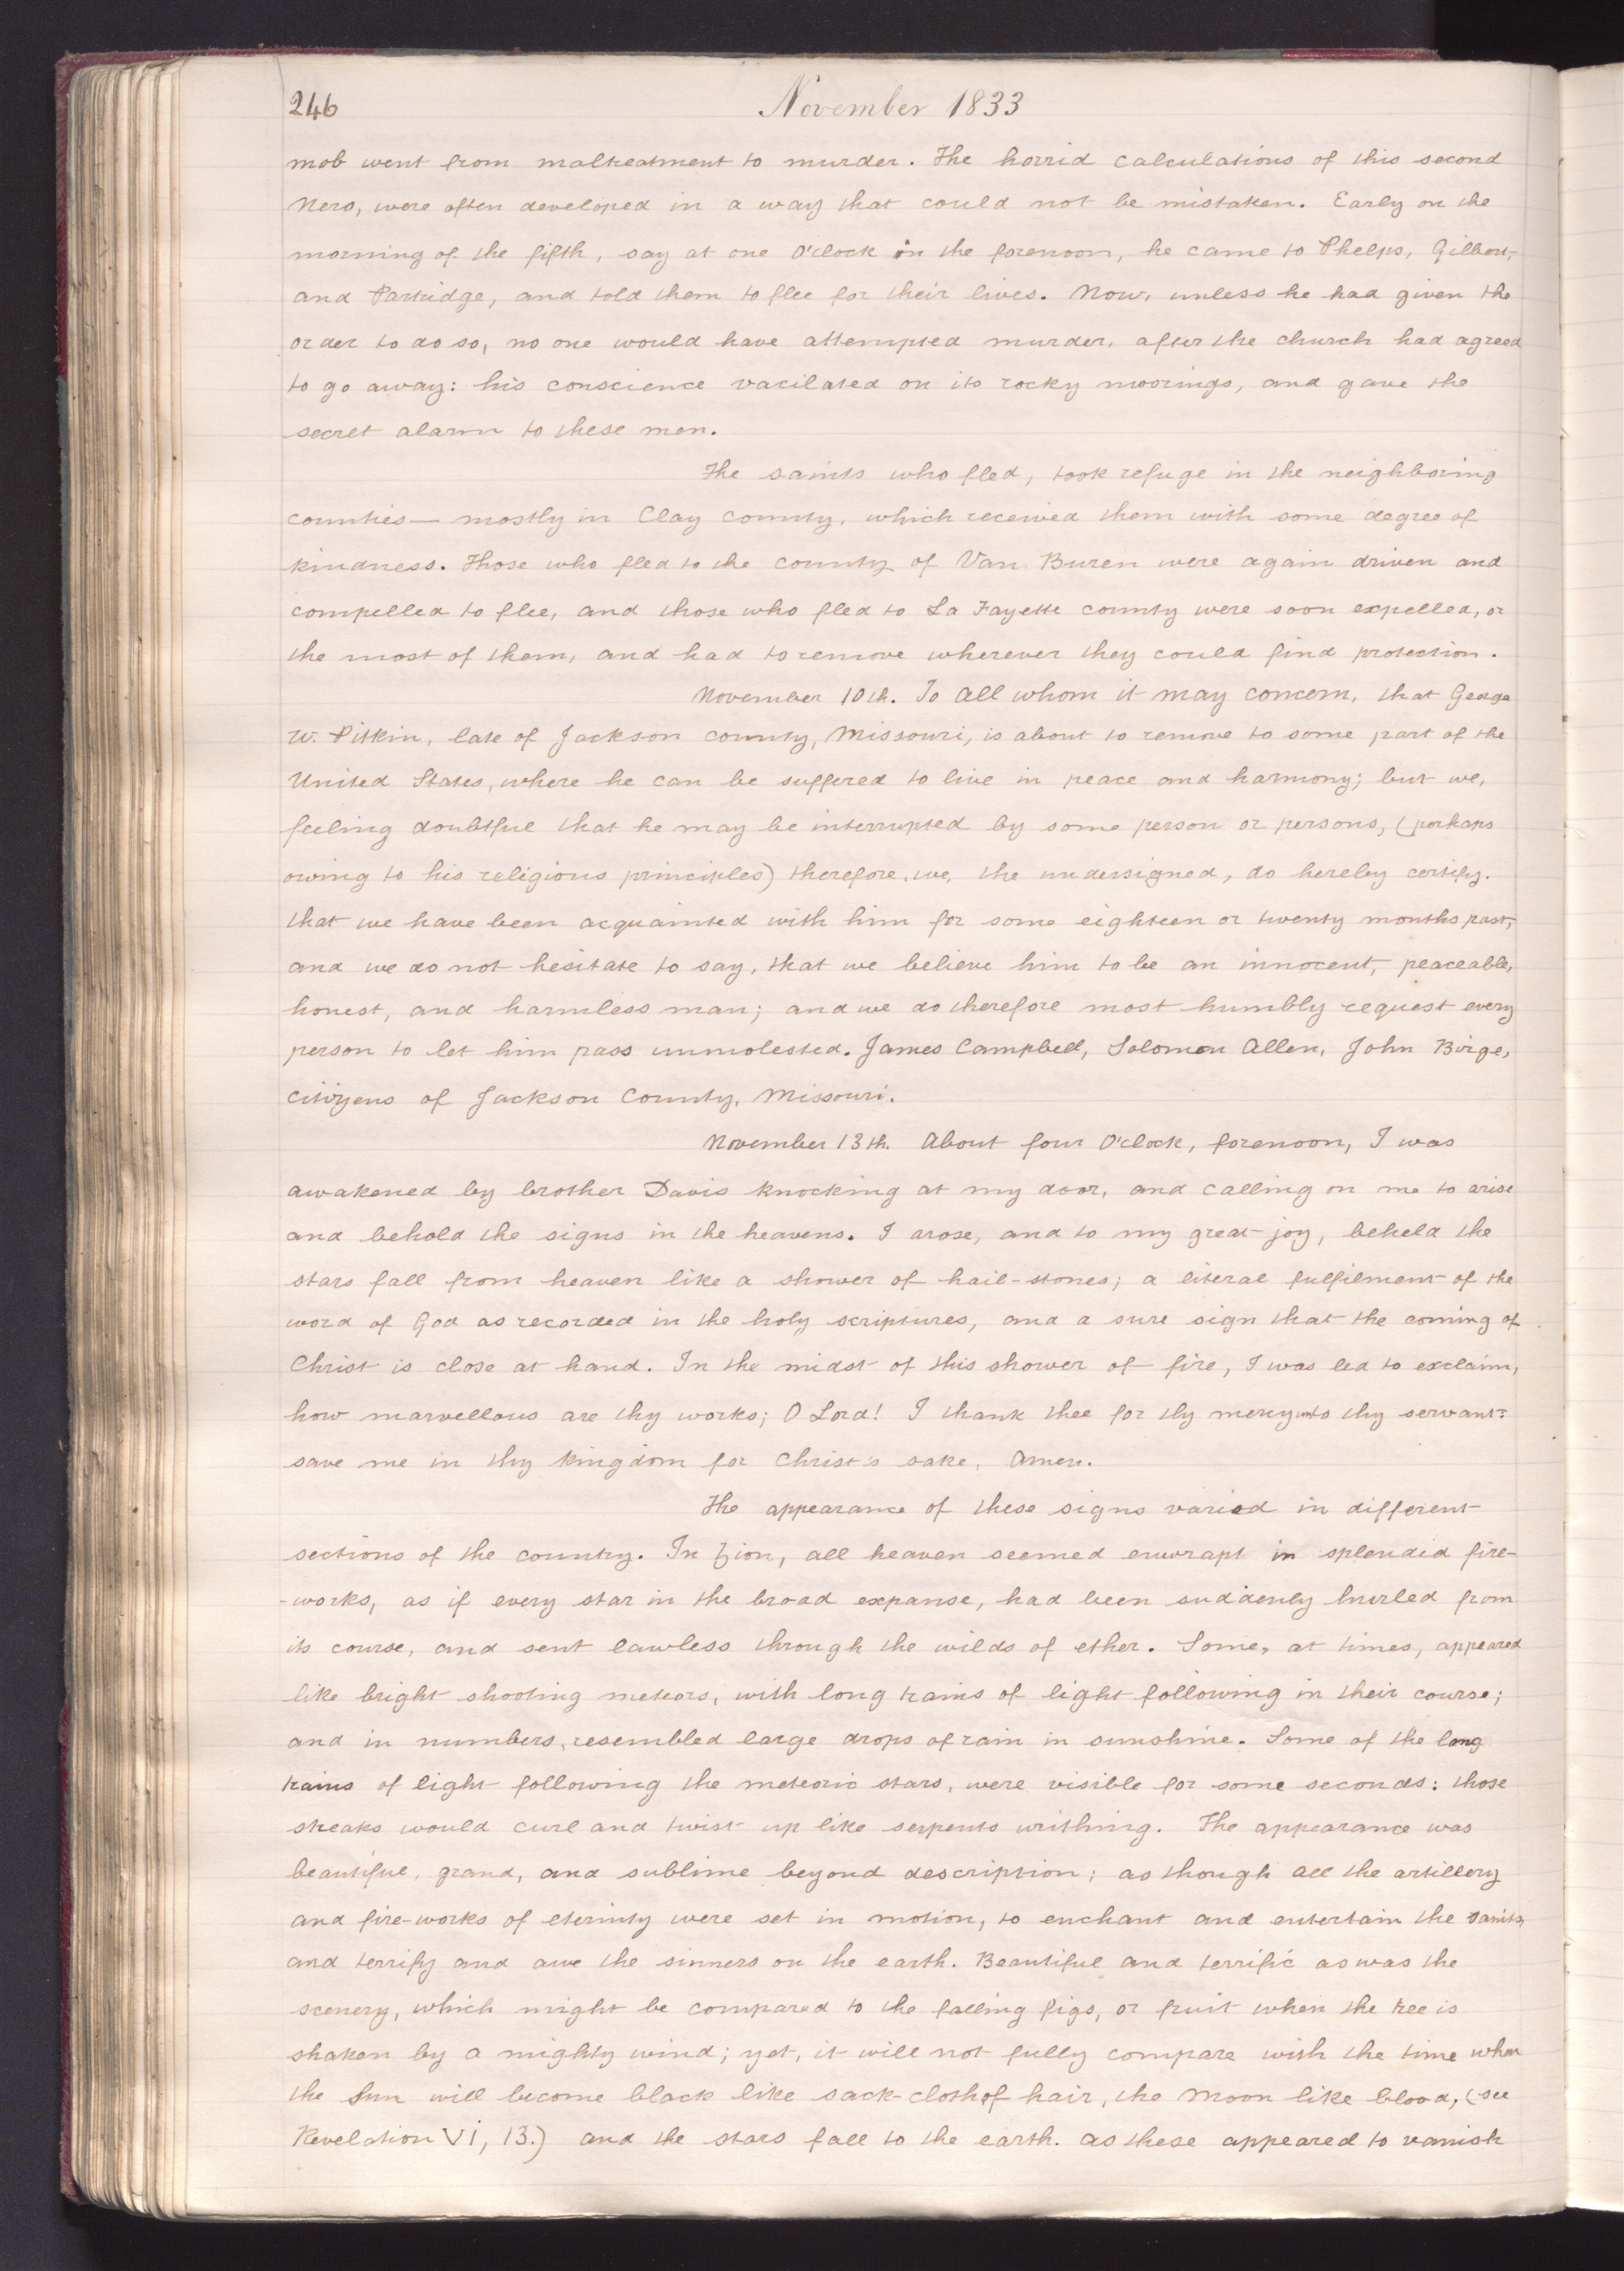 246
November 1833
mob went from maltreatment to murder. The horrid calculations of this second
Nero, were often developed in a way that could not be mistaken. Early on the
morning of the fifth, say at one O'clock in the forenoon, he came to Phelps, Gilbert,
and Partridge, and told them to flee for their lives. Now, unless he had given the
order to do so, no one would have attempted murder, after the church had agreed
to go away: his conscience vacilated on its rocky moorings, and gave the
secret alarm to these men.
The saints who fled, took refuge in the neighboring
counties— mostly in Clay County, which received them with some degree of
kindness. Those who fled to the county of Van Buren were again driven and
compelled to flee, and those who fled to La Fayette county were soon expelled, or
the most of them, and had to remove wherever they could find protection.
November 10th. To all whom it may concern, that George
W. Pitkin, late of Jackson county, Missouri, is about to remove to some part of the
United States, where he can be suffered to live in peace and harmony; but we,
feeling doubtful that he may be interrupted by some person or persons, (perhaps
owing to his religious principles) therefore, we, the undersigned, do hereby certify.
that we have been acquainted with him for some eighteen or twenty months past,
and we do not hesitate to say, that we believe him to be an innocent, peaceable,
honest, and harmless man; and we do therefore most humbly request every
person to let him pass unmolested. James Campbell, Solomon Allen, John Birge,
citizens of Jackson County, Missouri.
November 13th. About four O'clock, forenoon, I was
awakened by brother Davis knocking at my door, and calling on me to arise
and behold the signs in the heavens. I arose, and to my great joy, beheld the
stars fall from heaven like a shower of hail-stones; a literal fulfilment of the
word of God as recorded in the holy scriptures, and a sure sign that the coming of
Christ is close at hand. In the midst of this shower of fire, I was led to exclaim,
how marvellous are thy works; O Lord! I thank thee for thy mercy unto thy servant:
save me in thy kingdom for Christ's sake, Amen.
The appearance of these signs varied in different
sections of the country. In Zion, all heaven seemed enwrapt in splendid fire-
-works, as if every star in the broad expanse, had been suddenly hurled from
its course, and sent lawless through the wilds of ether. Some, at times, appeared
like bright shooting meteors, with long trains of light following in their course;
and in numbers, resembled large drops of rain in sunshine. Some of the long
trains of light following the meteoric stars, were visible for some seconds: those
streaks would curl and twist up like serpents writhing. The appearance was
beautiful, grand, and sublime beyond description; as though all the artillery
and fire-works of eternity were set in motion, to enchant and entertain the saints,
and terrify and awe the sinners on the earth. Beautiful and terrific as was the
scenery, which might be compared to the falling figs, or fruit when the tree is
shaken by a mighty wind; yet, it will not fully compare with the time when
the Sun will become black like sack-cloth of hair, the Moon like blood, (see
Revelation VI, 13.) and the stars fall to the earth. as these appeared to vanish